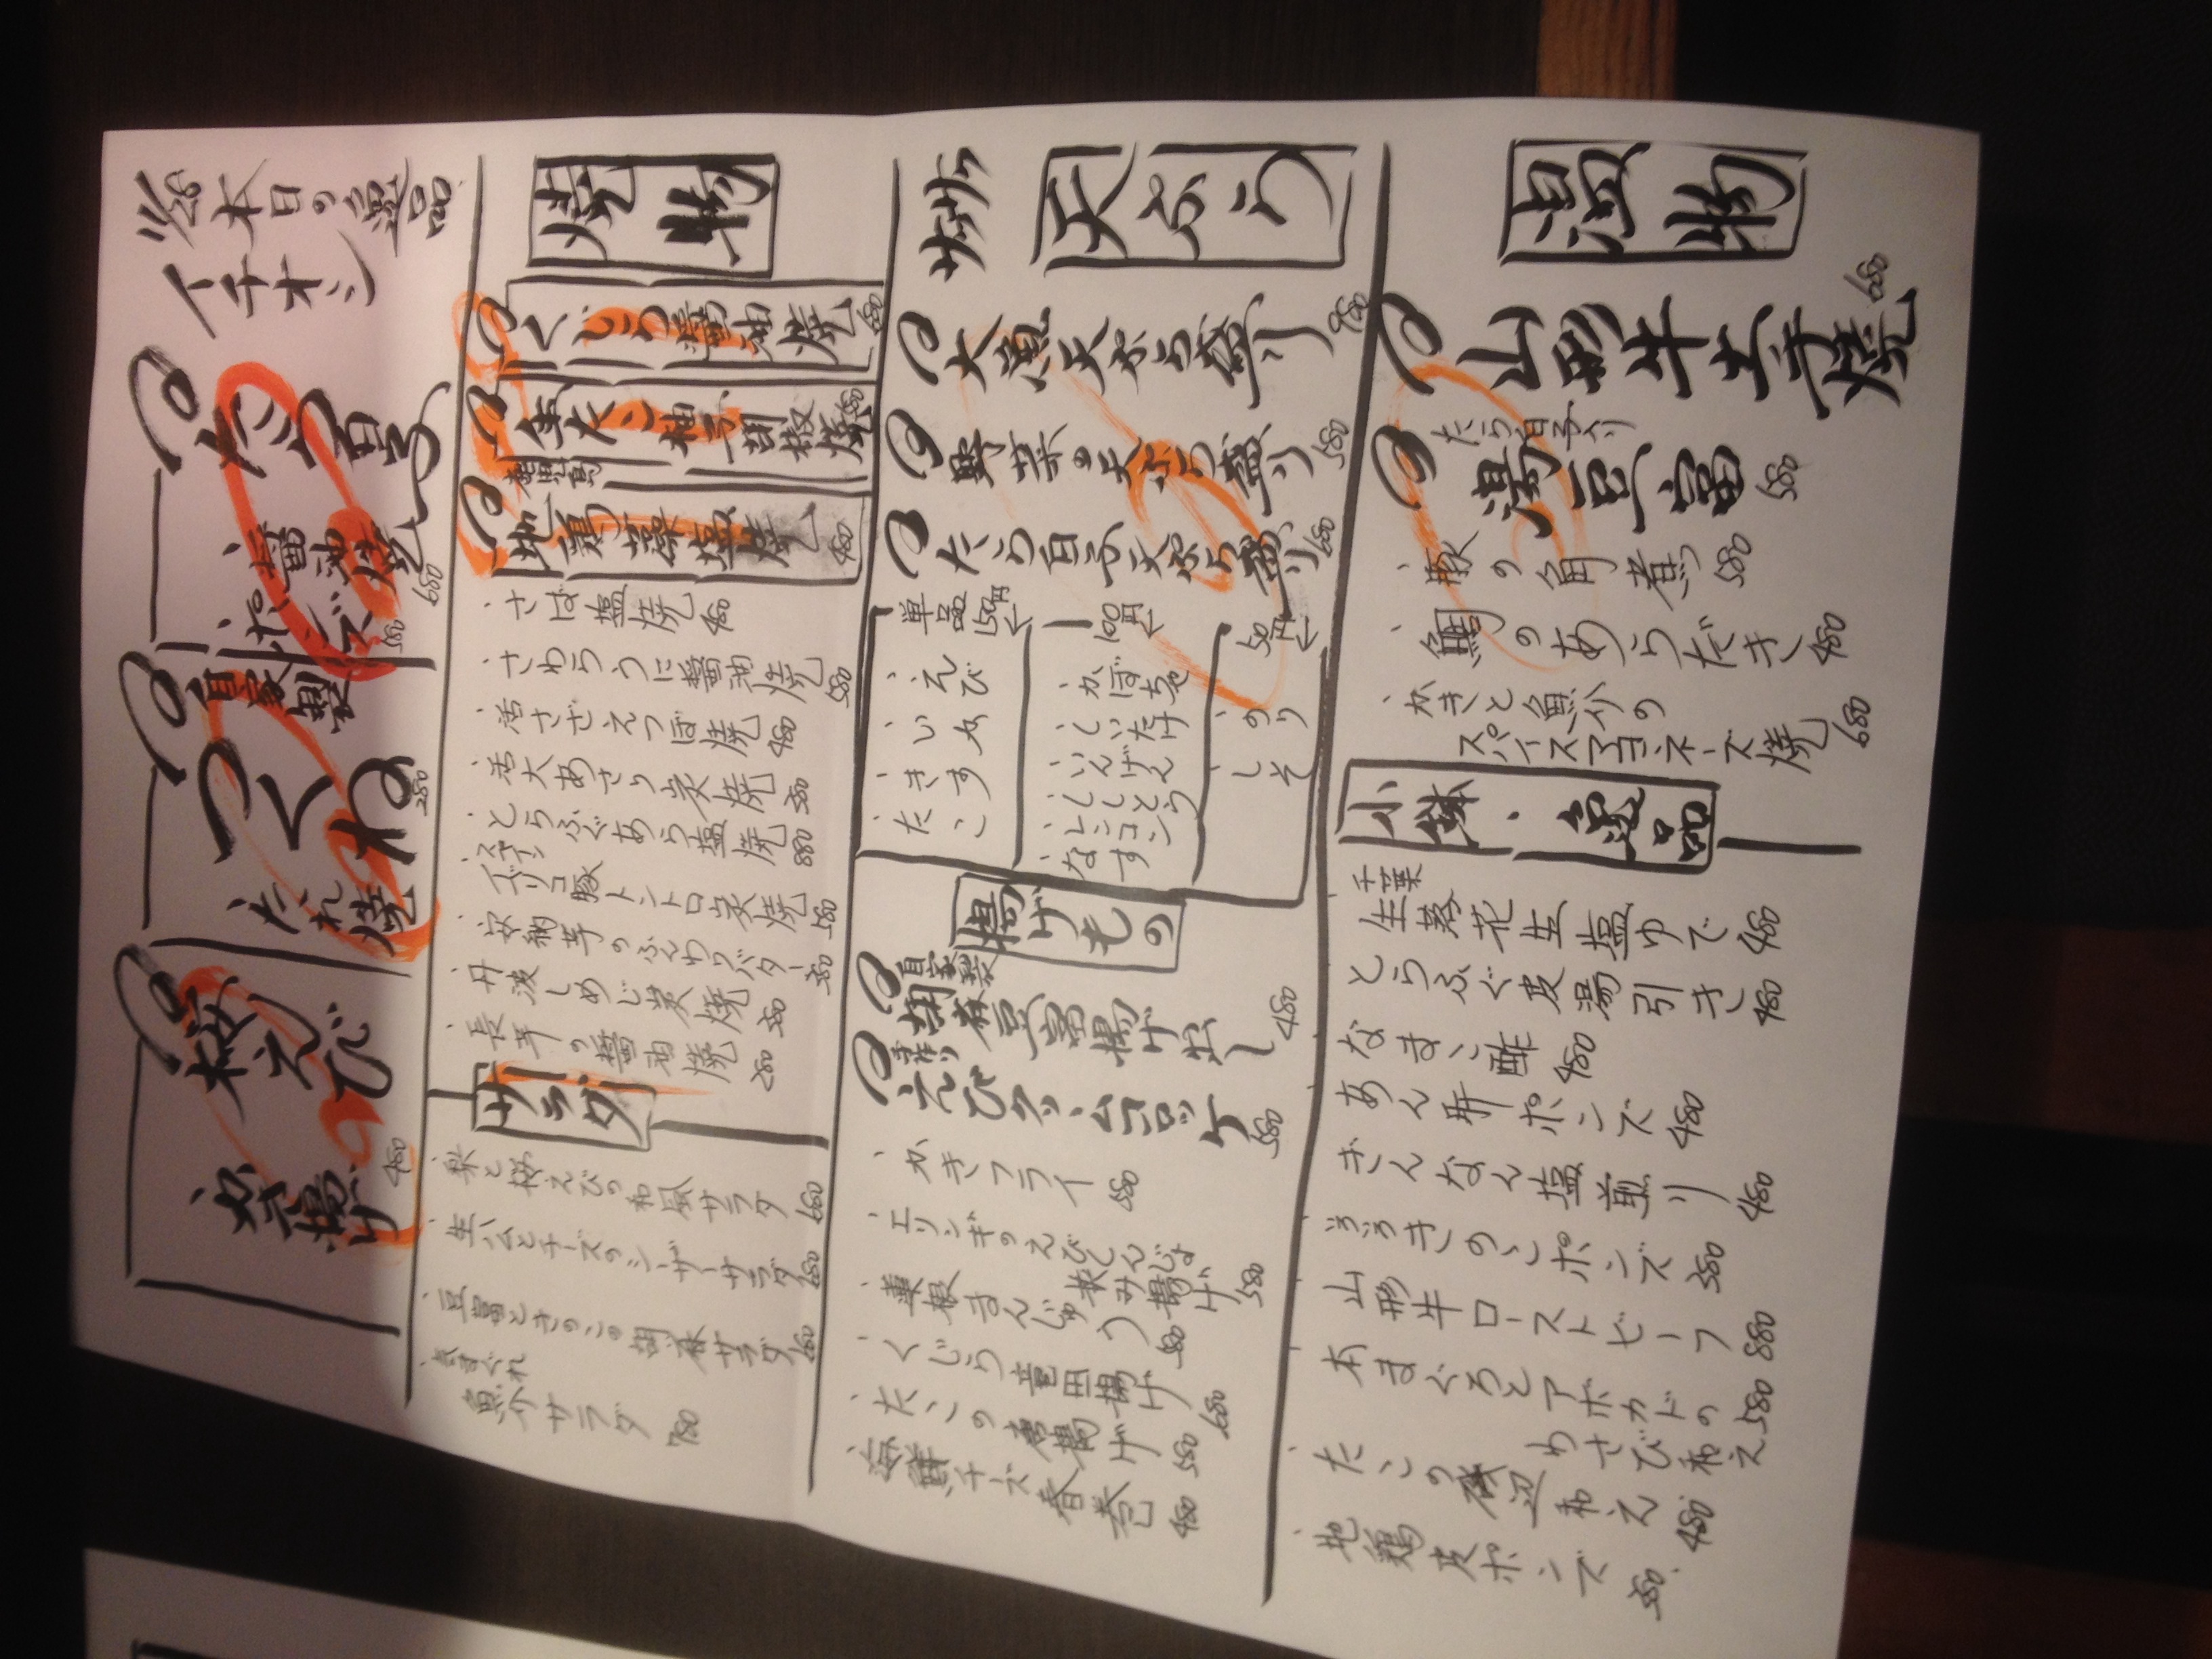 11/26 本日の逸品
イチオシ
たら白子
醤油焼 680
ポンズ 580
自家製
つくね
たれ焼
280
桜えび
かき揚げ
480
焼物
くじら醤油焼 880
牛タン柚子胡椒焼
地鶏藻塩焼
480
さば塩焼 480
さわらうに醤油焼 580
活さざえつぼ焼 480
活大あさり炭焼 380
とらふぐあら塩焼 880
スペイン
イベリコ豚トントロ炭焼 580
安納芋のふわりバター 380
丹波しめじ炭焼 380
長芋の醤油焼 280
サラダ
梨と桜えびの和風サラダ 680
生ハムとチーズのシーザーサラダ 680
豆富ときのこの胡麻サラダ 680
気まぐれ
魚介サラダ 780
サクサク
天ぷら
大魚天ぷら盛り 980
野菜の天ぷら盛り 580
たら白子天ぷら盛り 680
単品150円
、えび
、いか
、きす
、たこ
100円
、かぼちゃ
、しいたけ
、いんげん
、ししとう
、レンコン
、なす
50円
、のり
、しそ
揚げもの
自家製
胡麻豆富揚げ出し 480
えびクリームコロッケ 580
、かきフライ 580
、エリンギのえびしんじょ
挟み揚げ 580
蓮根まんじゅう 580
、くじら竜田揚げ 680
、たこの唐揚げ 580
、海鮮チーズ春巻 480
温物
山形牛土手焼 680
たら白子入り
湯豆富 580
、豚の角煮 580
、鯛のあらだき 480
、かきと魚介の
スパイスマヨネーズ焼 680
小鉢・逸品
千葉
生落花生塩ゆで 480
とらふぐ皮湯引き 480
なまこ酢 480
あん肝ポンズ 480
ぎんなん塩煎り 480
山形牛ローストビーフ 880
本まぐろとアボカドの
わさび和え 580
たこの磯辺和え 480
地鶏皮ポンズ 380